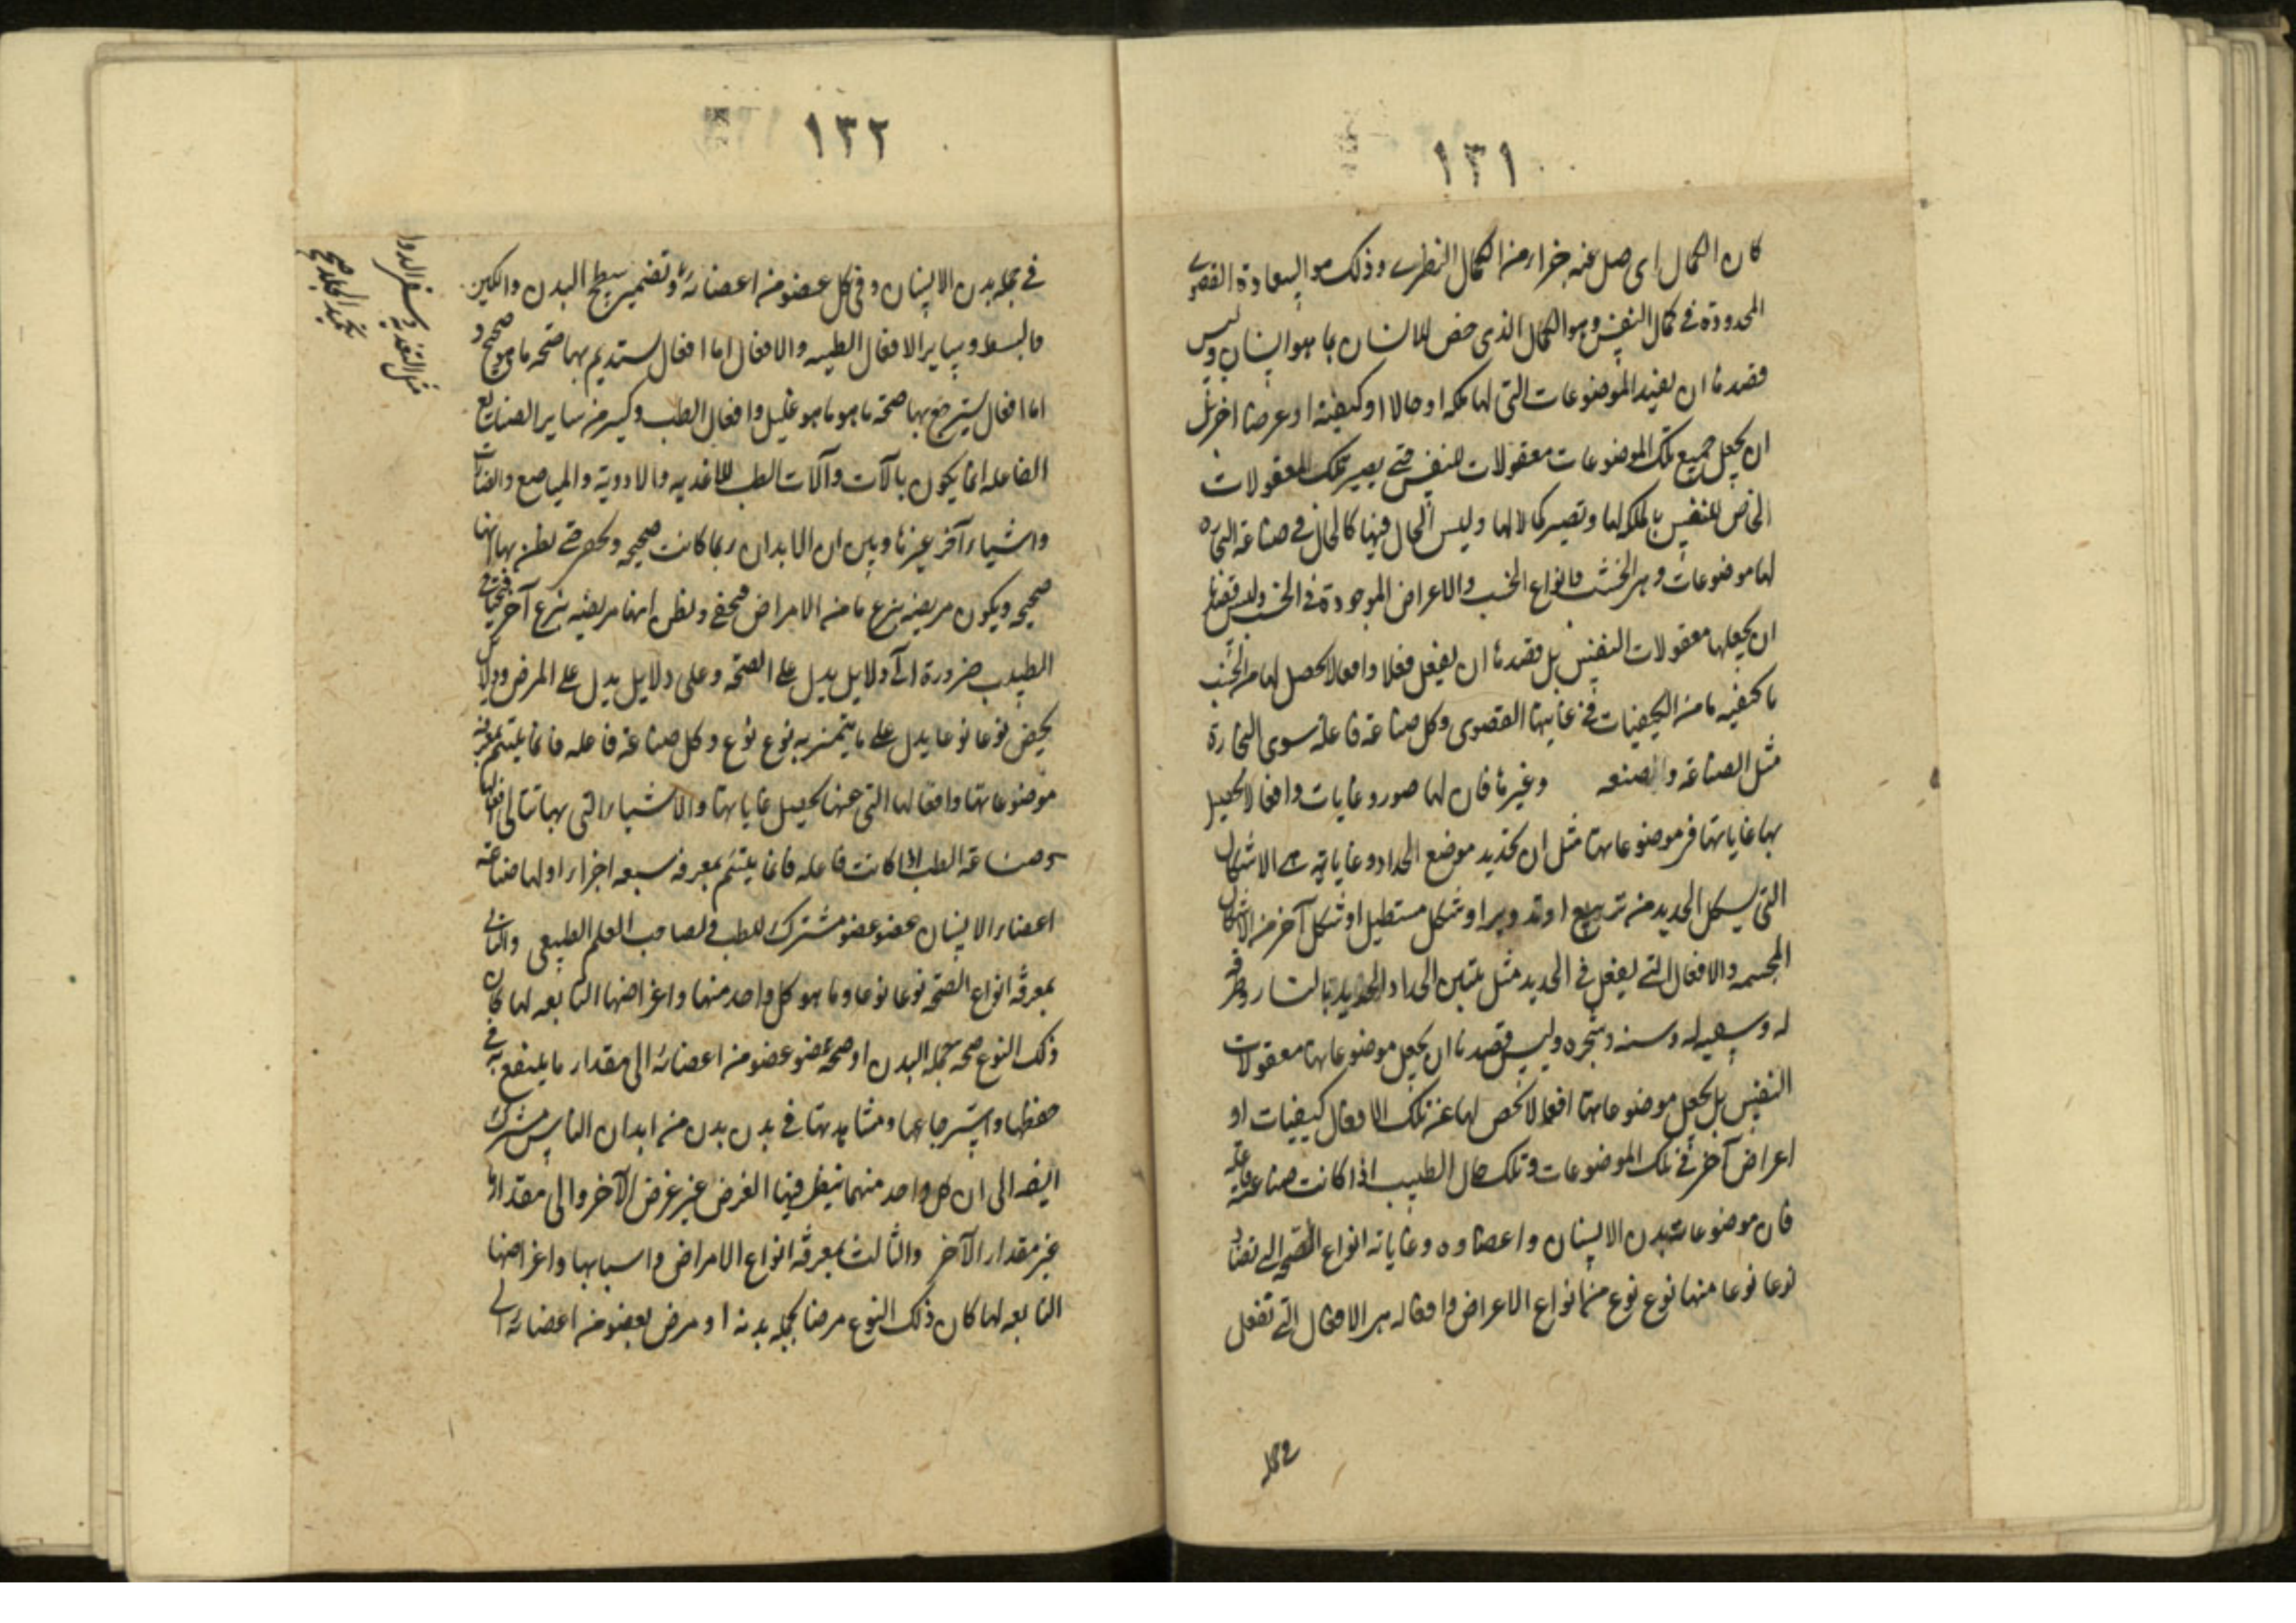 ١٣١
كان الكمال اى صل عنه جزا من الكمال النظرى وذلك هو السعادة القصوى
المحدودة فى كمال النفس وهو الكمال الذى خص للانسان بما هو انسان وليس
قصدنا ان نفيد الموضوعات التى لها ملكة او حالا او كيفية او عرضا اخر بل
ان يجعل جميع تلك الموضوعات معقولات للنفس حتى يصير تلك المعقولات
الخاص للنفس بالملكه لها وتصير كمالا لها وليس الحال فيها كالحال فى صناعة النجاره
لها موضوعات وهى الخشب وانواع الخشب والاعراض الموجودة فى الخشب وليس قصدنا
ان يجعلها معقولات النفس بل قصدنا ان يفعل فعلا وافعالا يحصل لها من الخشب
ما كيفيه ما من الكيفيات فى غايتها القصوى وكل صناعة فاعلة سوى النجارة
مثل الصناعة والصنعه وغيرها فان لها صور وغايات وافعالا يحصل
بها غاياتها فى موضوعاتها مثل ان تحديد موضع الحداد وغاياته هى الاشكال
التى يسكل الحديد من تربيع او تدوير او شكل مستطيل او شكل آخر من الاشكال
المجسمه والافعال التى يفعل فى الحديد مثل تليين الحداد الحديد بالنار وطرقه
له و له وسنه وبجره وليس قصدنا ان يجعل موضوعاتها معقولات
النفس بل يجعل موضوعاتها افعالا تخص لها عن تلك الافعال كيفيات او
اعراض آخر فى تلك الموضوعات وتلك حال الطبيب اذا كانت صناعته فاعلة
فان موضوعاته بدن الانسان واعضاوه وغاياته انواع الصحه التى
نوعا نوعا منها نوع نوع من انواع الاعراض وافعاله هى الافعال التى تفعل
فى جمله
١٣٢
فى جمله بدن الانسان وفى كل عضو من اعضائه وتضمير سطح البدن والكين
والبسط وساير الافعال الطبيه والافعال اما افعال يستديم بها صحه ما هو صحيح و
اما افعال يسترجع بها صحة ما هو ما هو عليل وافعال الطب وكير من ساير الصنايع
الفاعله انما يكون بآلات وآلات الطب للاغذيه والادوية والمباضع والفتات
واشياء آخر غيرها وبين ان الابدان ربما كانت صحيحه ويحصر حتى يظن بها انها
صحيحه ويكون مريضه بنوع ما من الامراض فيخفى ويظن انها مريضه بنوع آخر فيحتاج
الطبيب ضرورة الى دلايل يدل على الصحه وعلى دلايل يدل على المرض ودلايل
يخص نوعا نوعا يدل على ما يتميز به نوع نوع وكل صناعة فاعله فانما يلتئم بمعرفة
موضوعاتها وافعالها التى عنها يحصل غاياتها والاشياء التى بها تتاتى افعالها
وصناعة الطب اذا كانت فاعله فانما يلتئم بمعرفة سبعه اجزاء اولها صناعة
اعضاء الانسان عضو عضو مشترك للطب ولصاحب العلم الطبيعى والثانى
بمعرفة انواع الصحة نوعا نوعا وما هو كل واحد منها واعراضها التابعه لها كان
ذلك النوع صحه جمله البدن او صحه عضو عضو من اعضائه الى مقدار ما ينتفع به فى
حفظها واسترجاعها ومشاهدتها فى بدن بدن من ابدان الناس مشترك
ايضه الى ان كل واحد منهما ينظر فيها الغرض غير غرض الآخر والى مقدار ما
غير مقدار الآخر والثالث بمعرفة انواع الامراض واسبابها واعراضها
التابعه لها كان ذلك النوع مرضا بجمله بدنه او مرض بعضو من اعضائه الى
مثل التغذية وسقى الدوا
تجريد الجلد صح